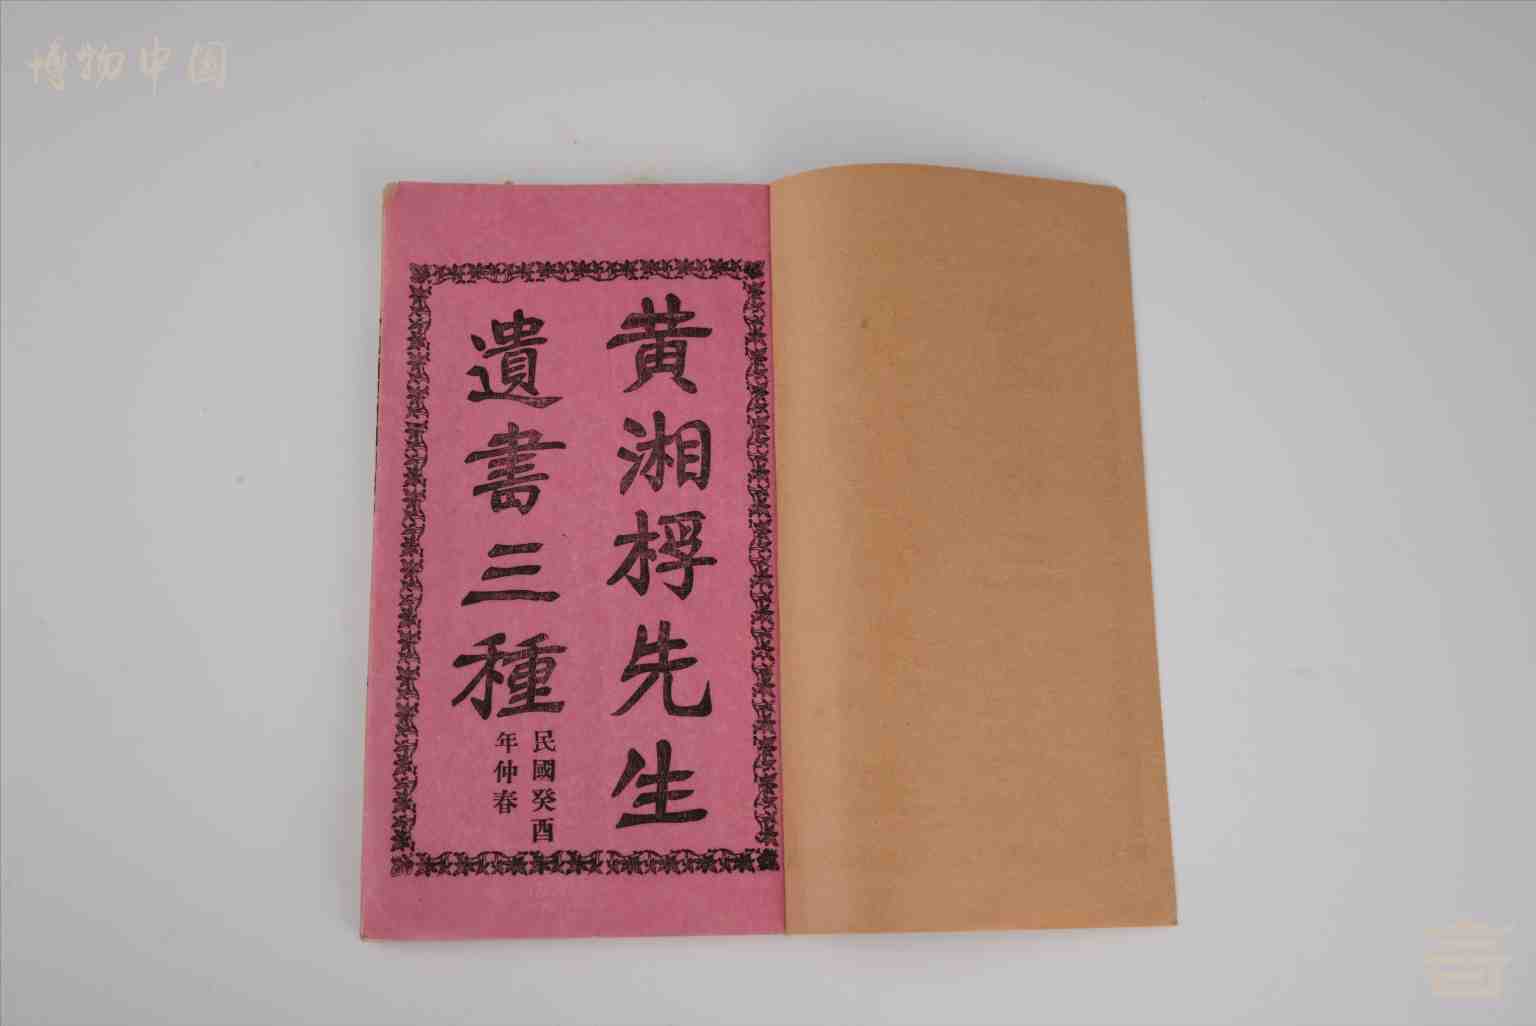 博物中国
黄湘桴先生
遺書三種
民國癸酉
年仲春